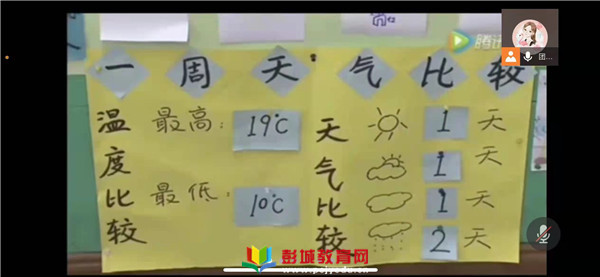 一周天气比较
温度比较
最高：19℃
最低：10℃
天气比较
1天
1天
1天
2天
腾讯
团…
彭城教育网